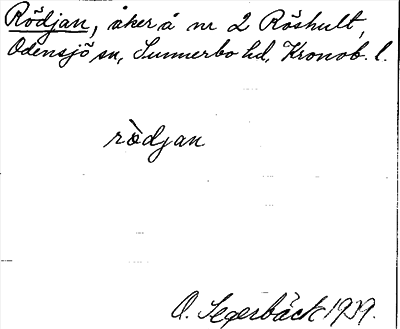 Rödjan, åker å nr 2 Röshult,
Odensjö sn, Sunnerbo hd, Kronob. l.
rödjan
O. Segerbäck 1939.